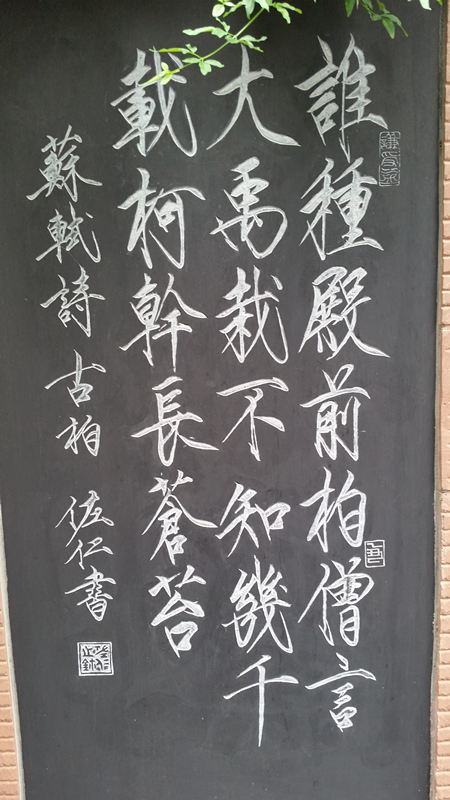 誰種殿前柏僧言
大禹栽不知幾千
載柯幹長蒼苔
蘇軾詩古柏佐仁書